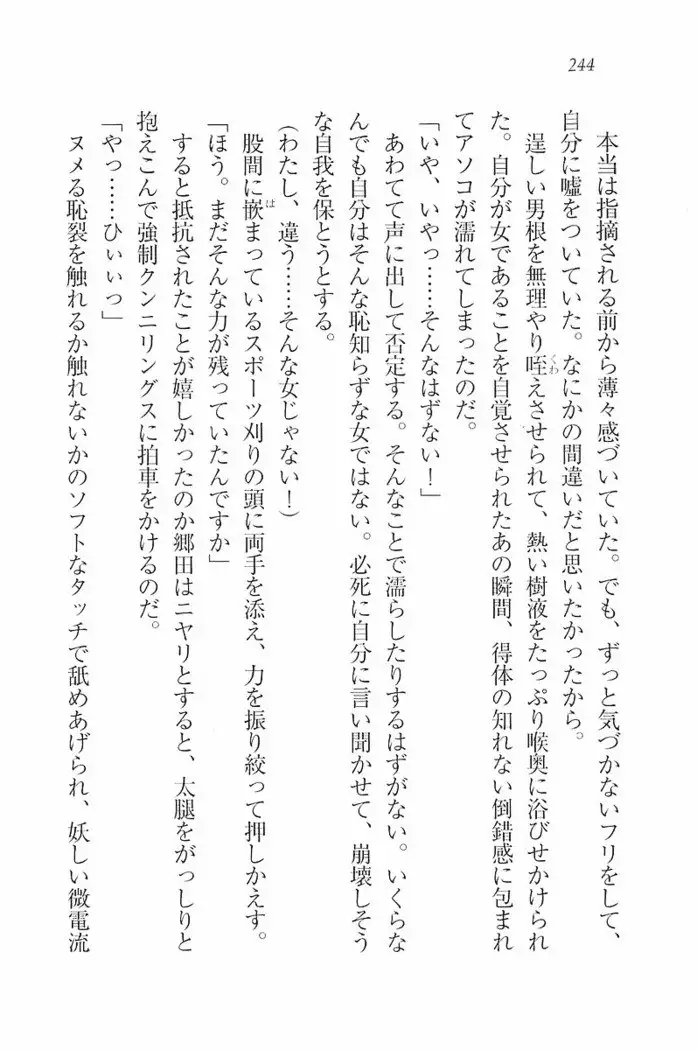 244
本当は指摘される前から薄々感づいていた。でも、ずっと気づかないフリをして、
自分に嘘をついていた。なにかの間違いだと思いたかったから。
くわ
逞しい男根を無理やり咥えさせられて、熱い樹液をたっぷり喉奥に浴びせかけられ
た。自分が女であることを自覚させられたあの瞬間、得体の知れない倒錯感に包まれ
てアソコが濡れてしまったのだ。
「いや、いやっ……そんなはずない!」
あわてて声に出して否定する。そんなことで濡らしたりするはずがない。いくらな
んでも自分はそんな恥知らずな女ではない。必死に自分に言い聞かせて、崩壊しそう
な自我を保とうとする。
(わたし、違う……そんな女じゃない!)
は
股間に嵌まっているスポーツ刈りの頭に両手を添え、力を振り絞って押しかえす。
「ほう。まだそんな力が残っていたんですか」
すると抵抗されたことが嬉しかったのか郷田はニヤリとすると、太腿をがっしりと
抱えこんで強制クンニリングスに拍車をかけるのだ。
「やっ……ひぃぃっ」
ヌメる恥裂を触れるか触れないかのソフトなタッチで舐めあげられ、妖しい微電流